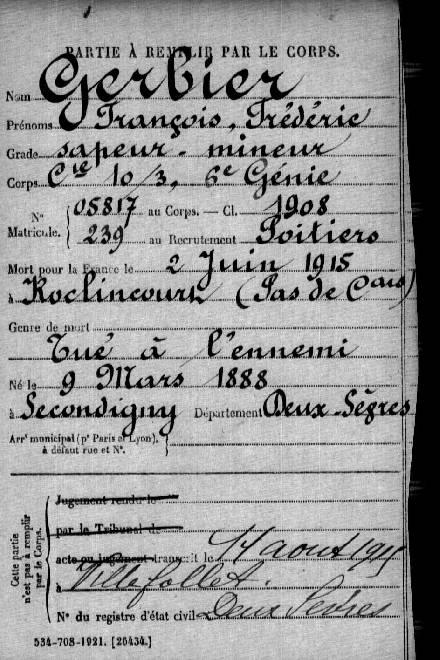 PARTIE À REMPLIR PAR LE CORPS.
Nom Gerbier
Prénoms François, Frédéric
Grade sapeur-mineur
Corps Cie 10/3, 6e Génie
N° Matricule. 05817 au Corps. — Cl. 1908
239 au Recrutement Poitiers
Mort pour la France le 2 Juin 1915
à Roclincourt (Pas de Cais)
Genre de mort
Tué à l'ennemi
Né le 9 Mars 1888
à Secondigny Département Deux-Sèvres
Arrt municipal (pr Paris et Lyon),
à défaut rue et N°.
Cette partie n'est pas à remplir par le Corps.
Jugement rendu le
par le Tribunal de
acte ou jugement transcrit le août
à Villefollet.
N° du registre d'état civil Deux Sèvres
534-708-1921. [26434.]